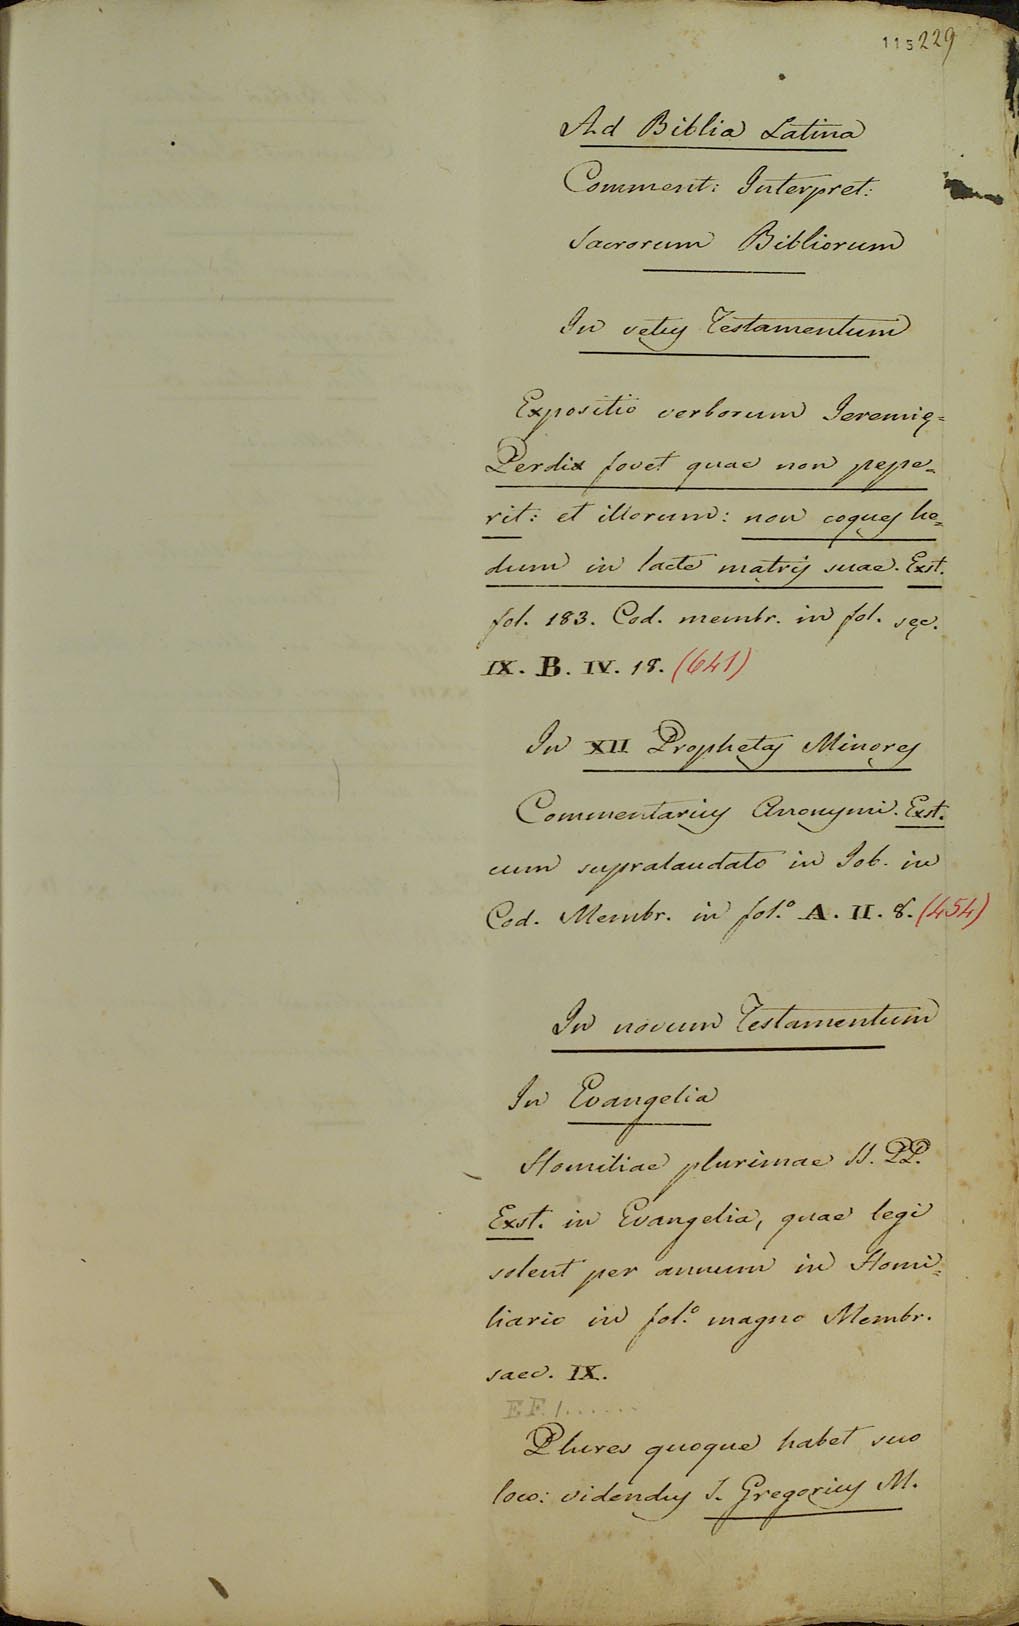 115 229
Ad Biblia Latina
Comment: Interpret:
Sacrorum Bibliorum
In vetus Testamentum
Expositio verborum Ieremię=
Perdix fovet quae non pepe=
rit: et illorum: non coques he=
dum in lacte matris suae. Exst.
fol. 183. Cod. membr. in fol. sęc.
IX. B. IV. 18. (641)
In XII Prophetas Minores
Commentarius Anonymi. Exst.
cum supralaudato in Iob. in
Cod. Membr. in fol.º A. II. 8. (454)
In novum Testamentum
In Evangelia
Homiliae plurimae SS. PP.
Exst. in Evangelia, quae legi
solent per annum in Homi=
liario in fol.º magno Membr.
saec. IX.
E F. 1......
Plures quoque habet suo
loco: videndus S. Gregorius M.